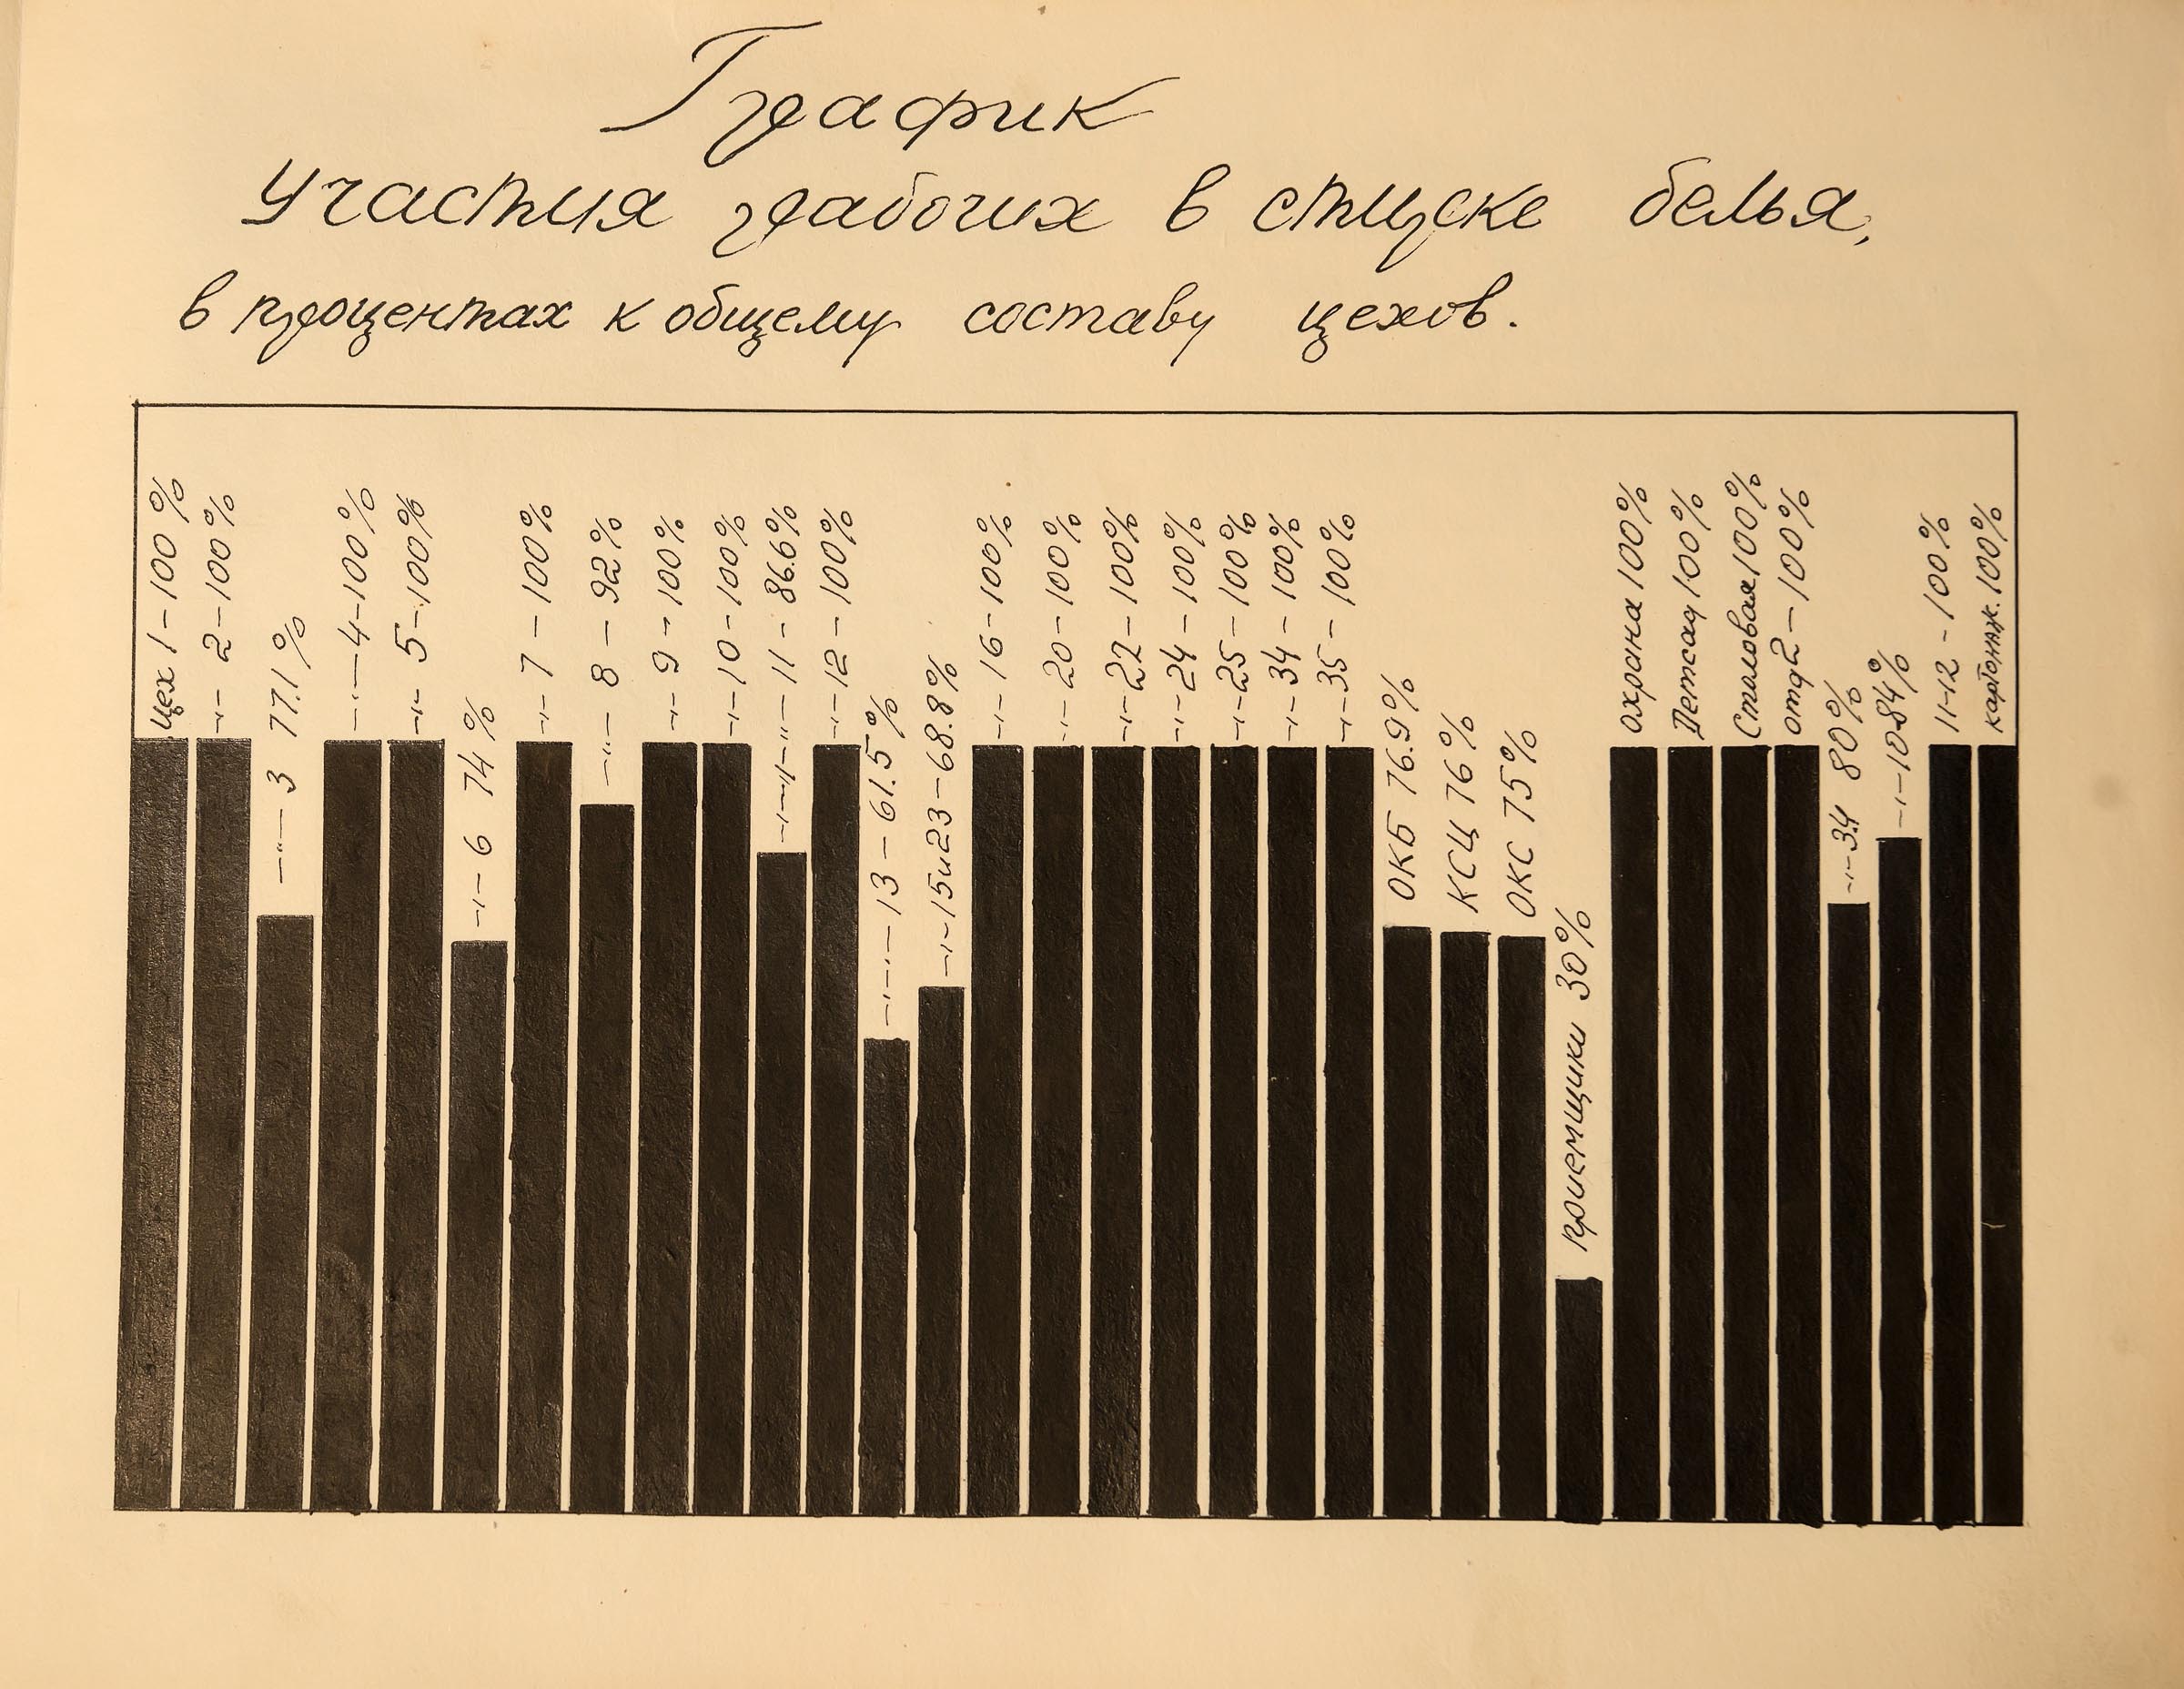 График
Участия рабочих в стирке белья,
в процентах к общему составу цехов.
Цех 1-100%
-"- 2-100%
-"- 3 77.1%
-"- 4-100%
-"- 5-100%
-"- 6 74%
-"- 7-100%
-"- 8-92%
-"- 9-100%
-"- 10-100%
-"- 11-86.6%
-"- 12-100%
-"- 13-61.5%
-"- 15и23-68.8%
-"- 16-100%
-"- 20-100%
-"- 22-100%
-"- 24-100%
-"- 25-100%
-"- 34-100%
-"- 35-100%
ОКБ 76.9%
КСЦ 76%
ОКС 75%
приемщики 30%
Охрана 100%
Детсад 100%
Столовая 100%
отд 2-100%
-"- 3.4 80%
-"- 10-84%
11-12-100%
картонаж. 100%